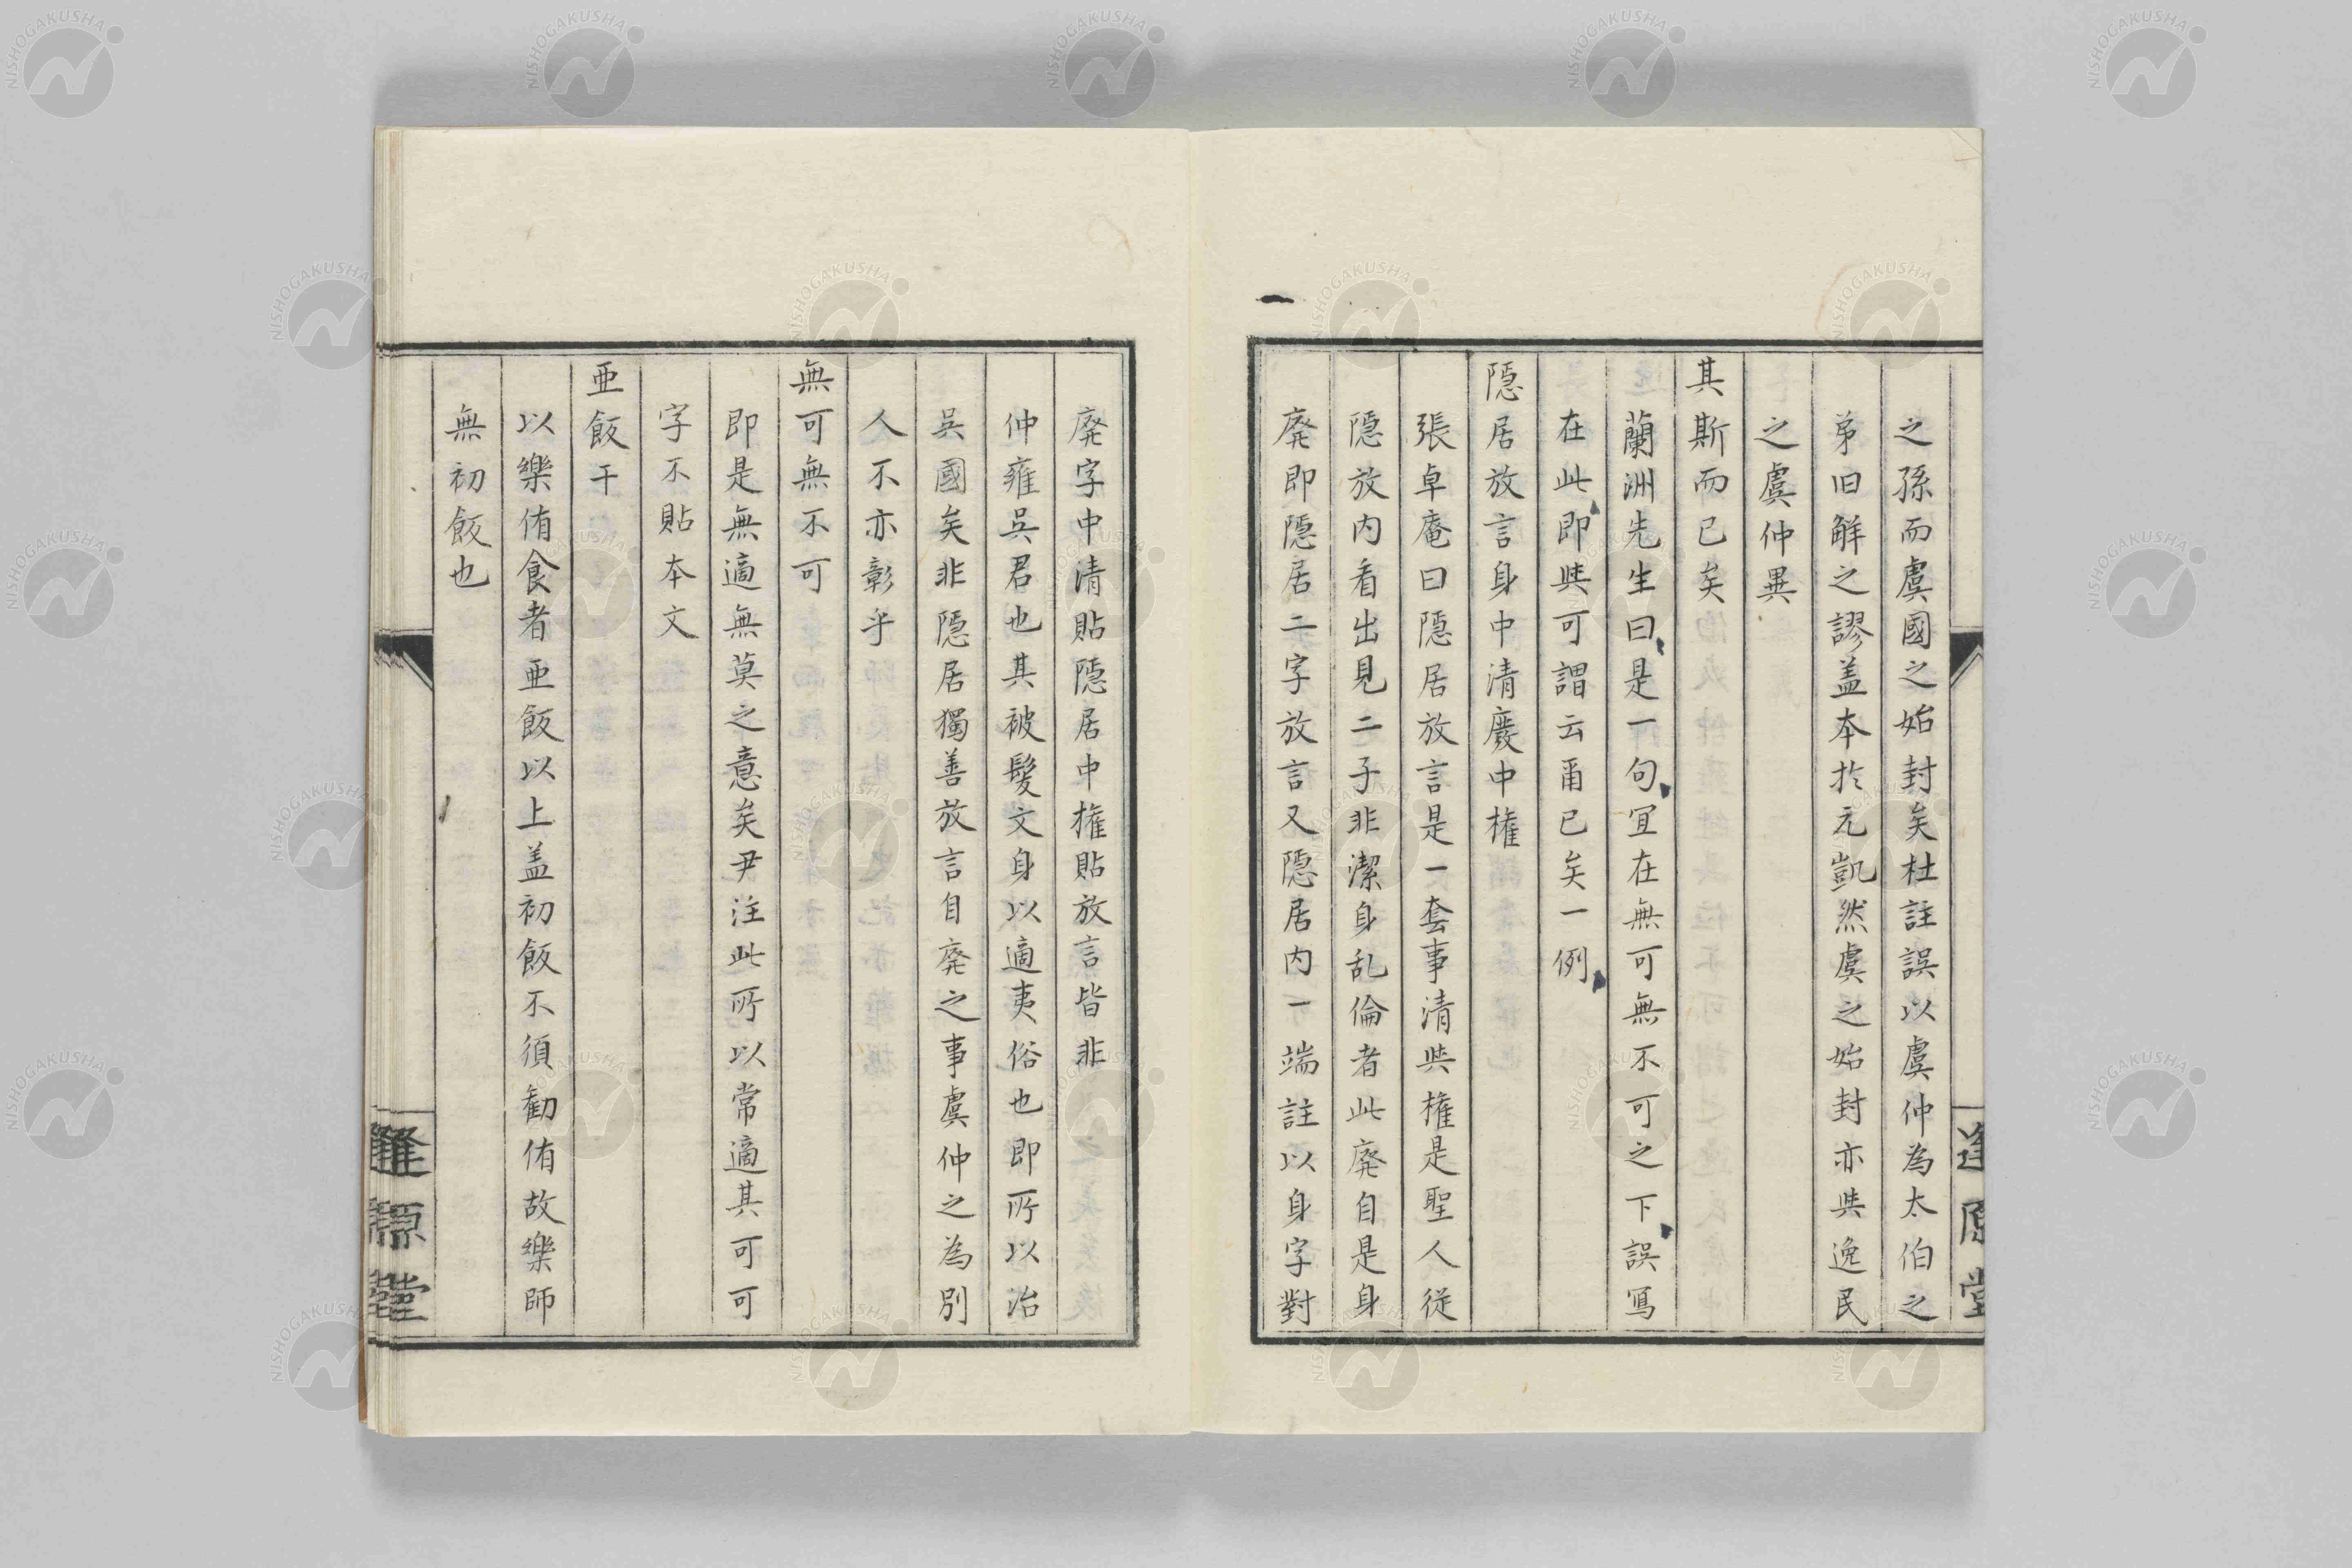 之孫而虞國之始封矣杜註誤以虞仲為太伯之
弟旧解之謬盖本於元凱然虞之始封亦㒷逸民
之虞仲異
其斯而已矣
蘭洲先生曰是一句宜在無可無不可之下誤寫
在此即㒷可謂云甬已矣一例
隠居放言身中清廢中権
張卓庵曰隠居放言是一套事清㒷権是聖人従
隠放内看出見二子非潔身乱倫者此廃自是身
廃即隠居二字放言又隠居内一端註以身字對
逢原堂
廃字中清貼隠居中権貼放言皆非
仲雍吳君也其被髮文身以適夷俗也即所以治
吳國矣非隠居獨善放言自廃之事虞仲之為別
人不亦彰乎
無可無不可
即是無適無莫之意矣尹注此所以常適其可可
字不貼本文
亜飯干
以樂侑食者亜飯以上盖初飯不須勧侑故樂師
無初飯也
逢原堂
NISHOGAKUSHA